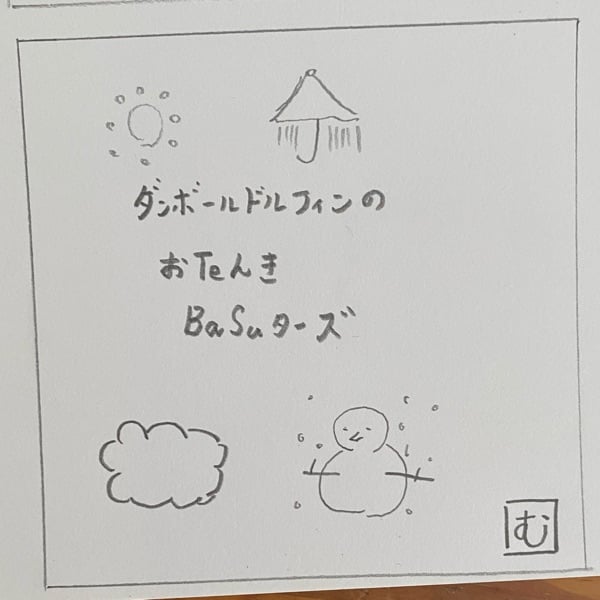 ダンボールドルフィンの
おTeんき
BaSuターズ
む